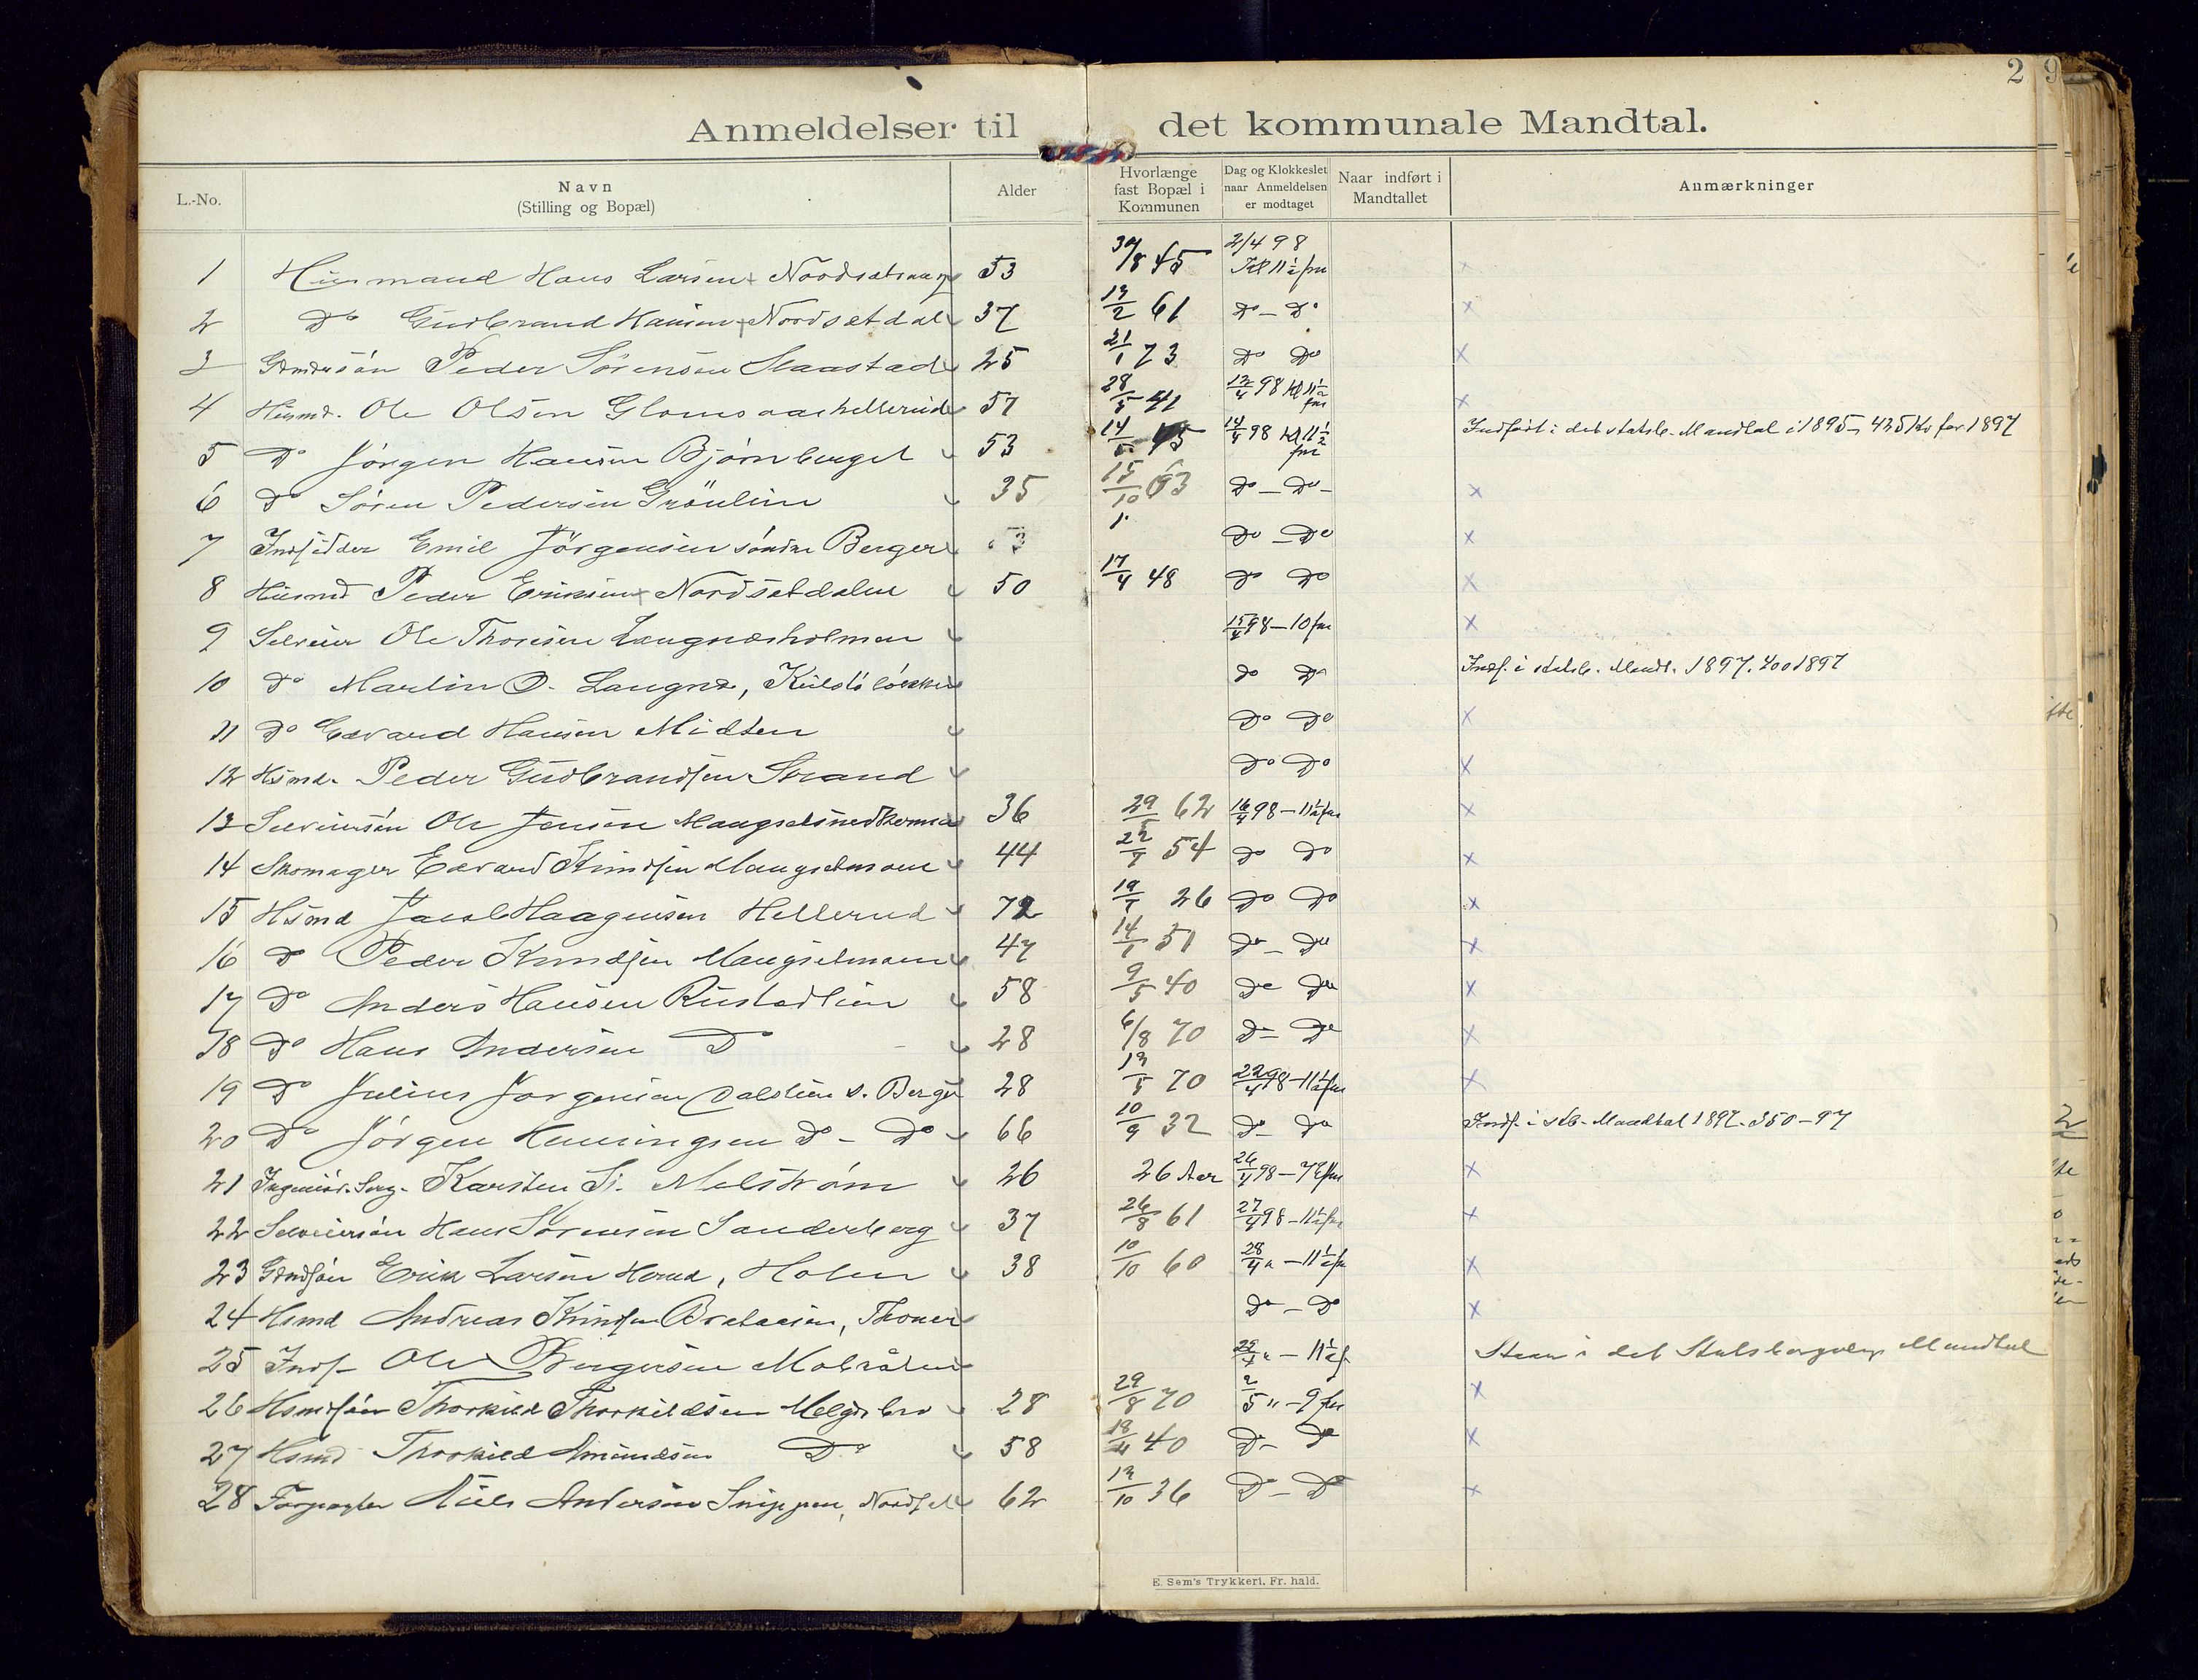 2 9
Anmeldelser til det kommunale Mandtal.
L.-No. Navn (Stilling og Bopæl) Alder Hvorlænge fast Bopæl i Kommunen Dag og Klokkeslet naar Anmeldelsen er modtaget Naar indført i Mandtallet Anmærkninger
1 Husmand Hans Larsen 53 30/8 45 2/4 98 Kl 11½ fm x
2 Do Gudbrand Hansen Nordsetdal 37 13/2 61 Do - Do x
3 Peder Sørensen Slaastad 25 21/1 73 Do Do x
4 Husmd. Ole Olsen Glomsaashellerud 57 28/5 41 13/4 98 Kl 11½ fm x
5 Do Jørgen Hansen Bjørnberget 53 14/5 45 14/4 98 Kl 11½ fm Indført i det statsb. Mandtal i 1895 - 435 for 1897
6 Do Søren Pedersen Grönlien 35 15/10 63 Do - Do - x
7 Indsidder Emil Jørgensen søndre Berger Do - Do x
8 Husmd Peder Eriksen x Nordsetdalen 50 17/4 48 Do Do x
9 Selveier Ole Thoresen Langnæsholmen 15/4 98 - 10 fm x
10 Do Martin O. Langnæs, Do Do Indf. i statsb. Mandt. 1897. 400 1897
11 Do Edvard Hansen Midten Do Do x
12 Hsmd. Peder Gudbrandsen Strand Do Do x
13 Selveiersøn Ole Jensen 36 29/5 62 16/4 98 - 11½ fm x
14 Skomager Edvard Knudsen Mangsetmoen 44 54 Do Do x
15 Hsmd Jacob Haagensen Hellerud 72 26 Do Do x
16 Do Peder Knudsen Mangsetmoen 47 14/1 51 Do - Do x
17 Do Anders Hansen Rustadlien 58 9/5 40 Do Do x
18 Do Hans Andersen Do 28 6/8 70 Do - Do x
19 Do Julius Jørgensen Dalslien s. Berger 28 13/5 70 22/4 98 - 11½ fm x
20 Do Jørgen Henningsen Do - Do 66 10/9 32 Do - Do Indf. i stb. Mandtal 1897. 350 - 97
21 Karsten S. Melström 26 26 Aar 26/4 98 - 7½ fm x
22 Selveiersøn Hans Sørensen Sanderberg 37 26/8 61 27/4 98 - 11½ fm x
23 Gmdsøn Erik Larsen Herud, Holen 38 10/10 60 28/4 " - 11½ fm x
24 Hsmd Andreas Knudsen Brataasen, Thoner Do - Do x
25 Inds. Ole Bergersen 29/4 " - 11½ f Staar i det Statsborgerlige Mandtal
26 Hsmdsøn Thorkild Thorkildsen Melgdsbro 28 29/8 70 2/5 " - 9 fm x
27 Hsmd Thorkild Amundsen Do 58 40 Do - Do x
28 Forpagter Niels Andersen Snippen, Nordset 62 13/10 36 Do - Do x
E. Sem's Trykkeri, Fr.hald.